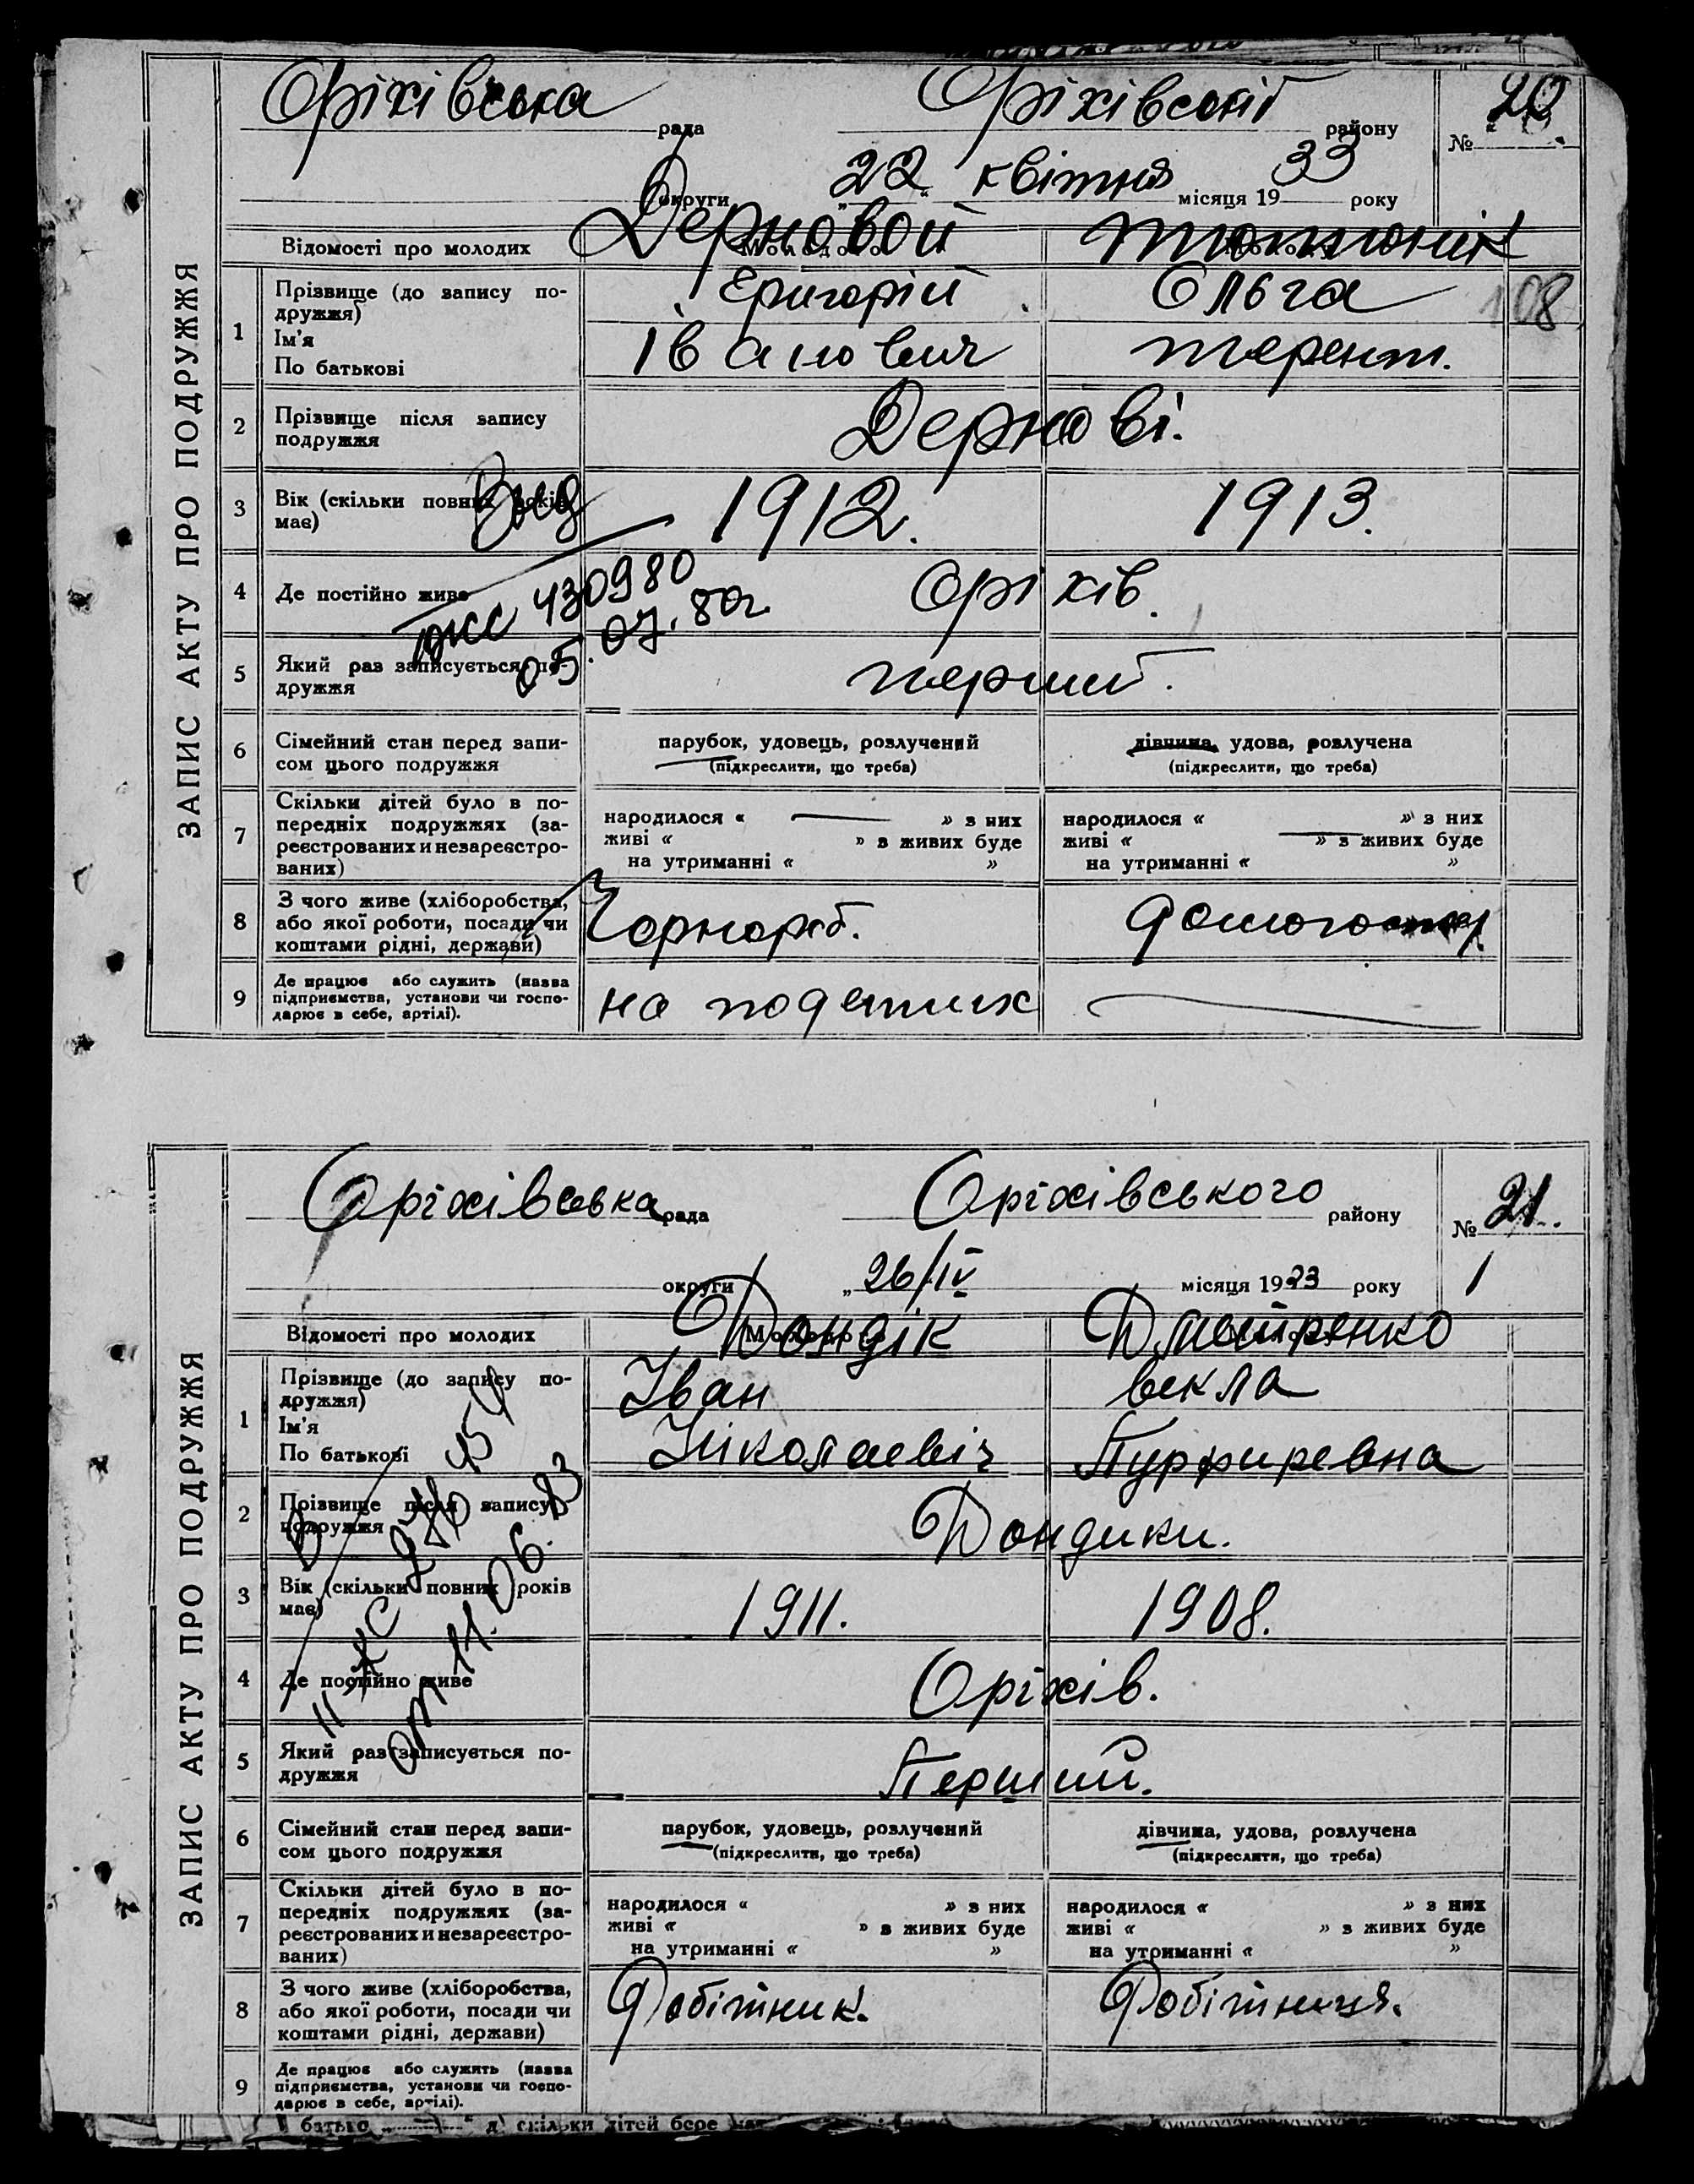 Оріхівська рада Оріхівський району № 20
округи „22“ квітня місяця 1933 року
Відомості про молодих Дерновой Тютюник
ЗАПИС АКТУ ПРО ПОДРУЖЖЯ
1 Прізвище (до запису по-
дружжя)
Ім'я
По батькові
Григорій Ольга 108
Іванович терент.
2 Прізвище після запису
подружжя
Дернові.
3 Вік (скільки повних років
має)
1912. 1913.
4 Де постійно живе
Оріхів.
430980
05.07.80г.
5 Який раз записується по-
дружжя
перший.
6 Сімейний стан перед запи-
сом цього подружжя
парубок, удовець, розлучений
(підкреслити, що треба)
дівчина, удова, розлучена
(підкреслити, що треба)
7 Скільки дітей було в по-
передніх подружжях (за-
реєстрованих и незареєстро-
ваних)
народилося « » з них
живі « » з живих буде
на утриманні « »
народилося « » з них
живі « » з живих буде
на утриманні « »
8 З чого живе (хліборобства,
або якої роботи, посади чи
коштами рідні, держави)
Чорнороб.
9 Де працює або служить (назва
підприємства, установи чи госпо-
дарює в себе, артілі).
на поденних
Оріхівська рада Оріхівського району № 21.
округи „26/IV місяця 1933 року
Відомості про молодих Дондік Дмитренко
ЗАПИС АКТУ ПРО ПОДРУЖЖЯ
1 Прізвище (до запису по-
дружжя)
Ім'я
По батькові
Іван Векла
Ніколаевіч Пурфиревна
2 Прізвище після запису
подружжя
Дондики.
3 Вік (скільки повних років
має)
1911. 1908.
от 11.06.83
4 Де постійно живе
Оріхів.
5 Який раз записується по-
дружжя
Перший.
6 Сімейний стан перед запи-
сом цього подружжя
парубок, удовець, розлучений
(підкреслити, що треба)
дівчина, удова, розлучена
(підкреслити, що треба)
7 Скільки дітей було в по-
передніх подружжях (за-
реєстрованих и незареєстро-
ваних)
народилося « » з них
живі « » з живих буде
на утриманні « »
народилося « » з них
живі « » з живих буде
на утриманні « »
8 З чого живе (хліборобства,
або якої роботи, посади чи
коштами рідні, держави)
Робітник. Робітниця.
9 Де працює або служить (назва
підприємства, установи чи госпо-
дарює в себе, артілі).